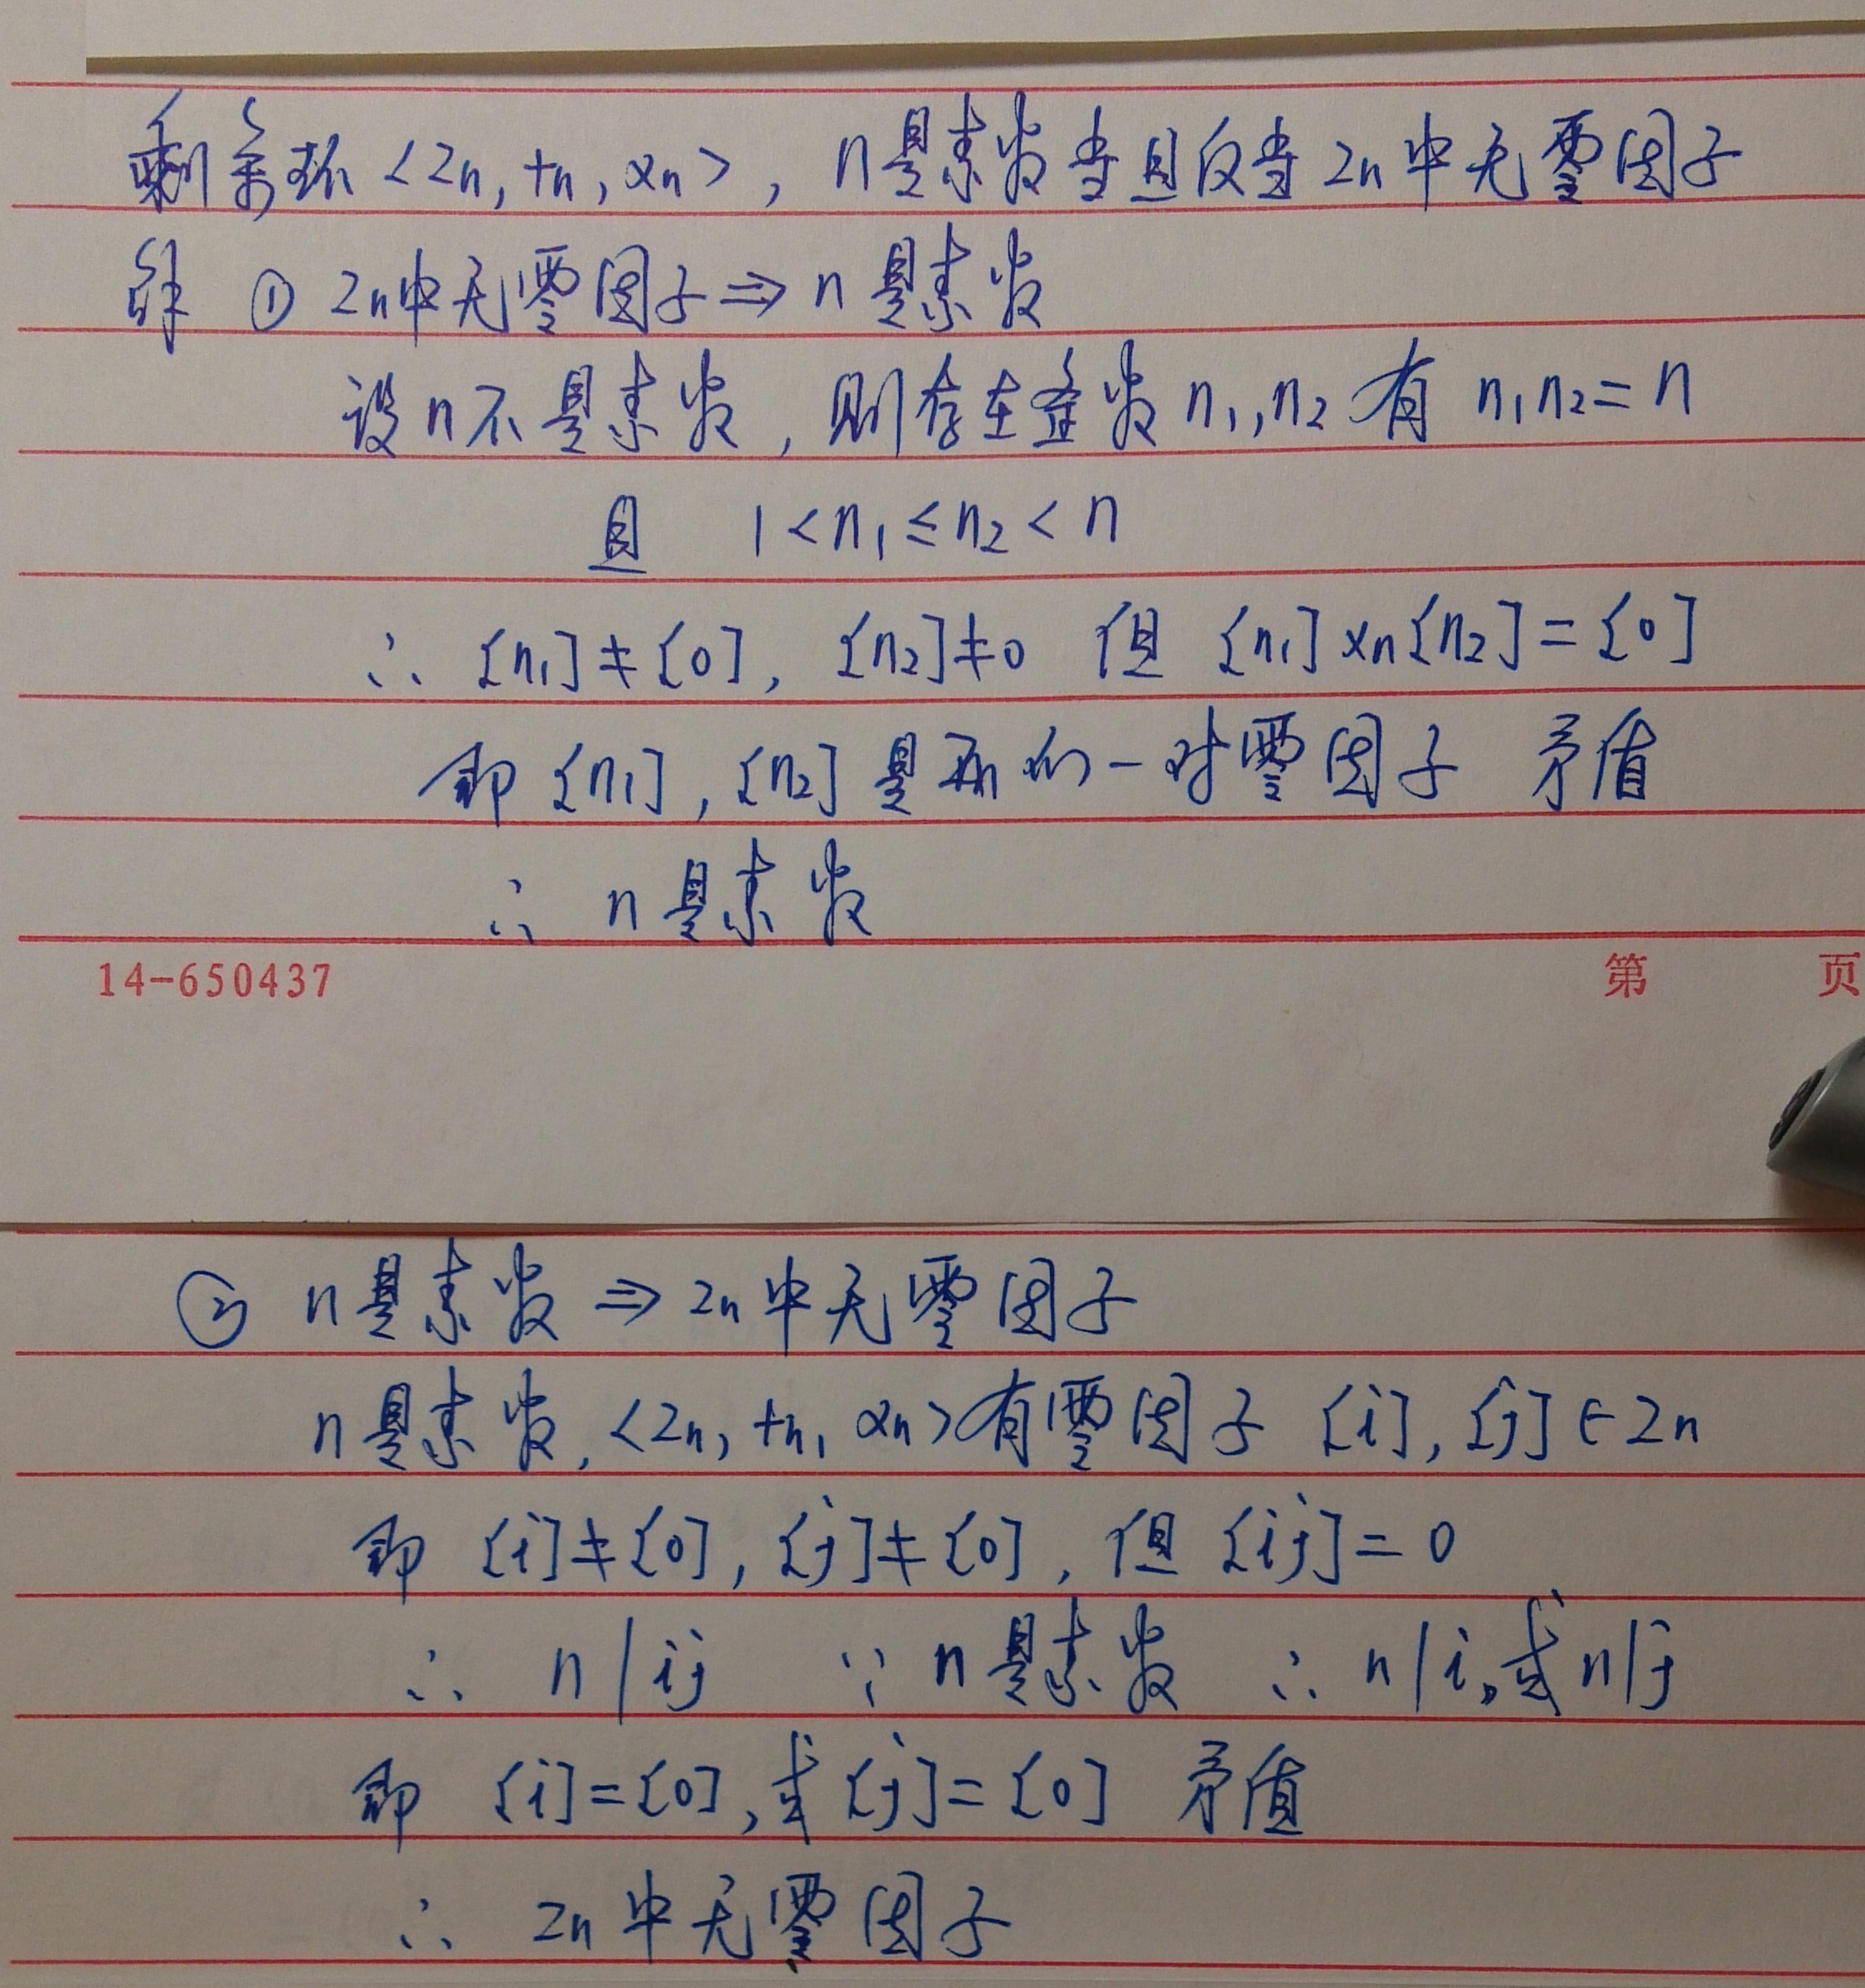 剩余环<Zn, +n, ×n>, n是素数当且仅当 Zn中无零因子
解 ① Zn中无零因子⇒ n 是素数
设n不是素数, 则存在整数 n₁,n₂ 有 n₁n₂=n
且 1<n₁≤n₂<n
∴ [n₁]≠[0], [n₂]≠0 但 [n₁]×n[n₂]=[0]
即 [n₁], [n₂] 是环的一对零因子 矛盾
∴ n 是素数
14-650437 第 页
② n是素数 ⇒ Zn中无零因子
n是素数, <Zn, +n, ×n>有零因子 [i], [j]∈Zn
即 [i]≠[0], [j]≠[0], 但 [ij]=0
∴ n|ij ∵ n是素数 ∴ n|i,或n|j
即 [i]=[0],或[j]=[0] 矛盾
∴ Zn中无零因子